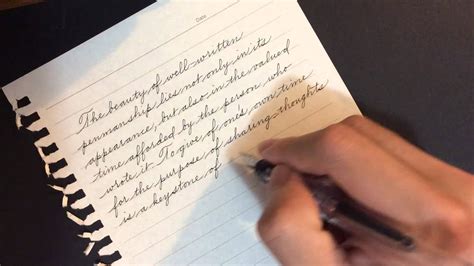 Date
The beauty of well-written
penmanship lies not only in its
appearance, but also in the valued
time afforded by the person who
wrote it. To give of one's own time
for the purpose of sharing thoughts
is a keystone of